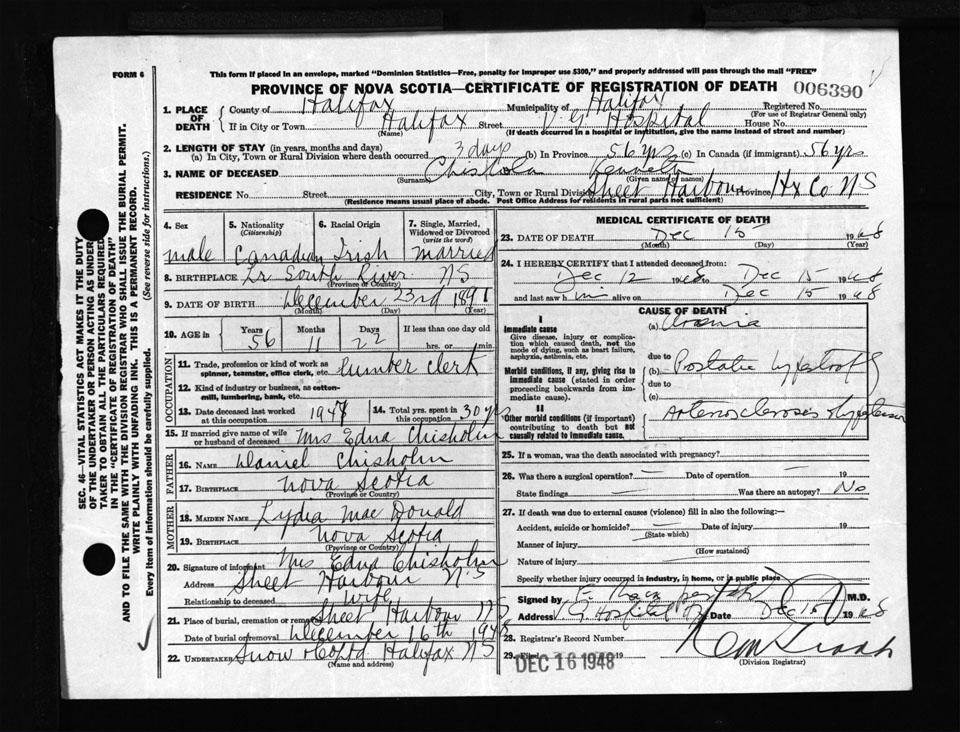 FORM 6
This form if placed in an envelope, marked "Dominion Statistics—Free, penalty for improper use $300," and properly addressed will pass through the mail "FREE"
PROVINCE OF NOVA SCOTIA—CERTIFICATE OF REGISTRATION OF DEATH 006390
1. PLACE OF DEATH
County of Halifax Municipality of Halifax Registered No.
(For use of Registrar General only)
If in City or Town Halifax Street V. G. Hospital House No.
(Name) (If death occurred in a hospital or institution, give the name instead of street and number)
2. LENGTH OF STAY (in years, months and days)
(a) In City, Town or Rural Division where death occurred 3 days (b) In Province 56 yrs (c) In Canada (if immigrant) 56 yrs
3. NAME OF DECEASED Chisholm
(Surname) (Given name or names)
RESIDENCE No. Street City, Town or Rural Division Sheet Harbour Province Hx Co NS
(Residence means usual place of abode. Post Office Address for residents in rural parts not sufficient)
4. Sex male
5. Nationality (Citizenship) Canadian
6. Racial Origin Irish
7. Single, Married, Widowed or Divorced (write the word) married
8. BIRTHPLACE Lr South River NS
(Province or Country)
9. DATE OF BIRTH December 23rd 1891
(Month) (Day) (Year)
10. AGE in Years 56 Months 11 Days 22 If less than one day old hrs. or min.
OCCUPATION
11. Trade, profession or kind of work as spinner, teamster, office clerk, etc. lumber clerk
12. Kind of industry or business, as cotton-mill, lumbering, bank, etc.
13. Date deceased last worked at this occupation 1948
14. Total yrs. spent in this occupation 30 yrs
15. If married give name of wife or husband of deceased Mrs Edna Chisholm
FATHER
16. NAME Daniel Chisholm
17. BIRTHPLACE Nova Scotia
(Province or Country)
MOTHER
18. MAIDEN NAME Lydia MacDonald
19. BIRTHPLACE Nova Scotia
(Province or Country)
20. Signature of informant Mrs Edna Chisholm
Address Sheet Harbour N.S
Relationship to deceased wife
21. Place of burial, cremation or removal Sheet Harbour NS
Date of burial or removal December 16th 1948
22. UNDERTAKER Snow & Co Ltd Halifax NS
(Name and address)
MEDICAL CERTIFICATE OF DEATH
23. DATE OF DEATH Dec 15 1948
(Month) (Day) (Year)
24. I HEREBY CERTIFY that I attended deceased from:
Dec 12 1948 to Dec 15 1948
and last saw him alive on Dec 15 1948
CAUSE OF DEATH
I
Immediate cause
Give disease, injury or complication which caused death, not the mode of dying, such as heart failure, asphyxia, asthenia, etc.
(a) Uraemia
due to
Morbid conditions, if any, giving rise to immediate cause (stated in order proceeding backwards from immediate cause).
(b) Prostatic
due to
(c)
II
Other morbid conditions (if important) contributing to death but not causally related to immediate cause.
Arteriosclerosis
25. If a woman, was the death associated with pregnancy?
26. Was there a surgical operation? — Date of operation — 19
State findings — Was there an autopsy? No
27. If death was due to external causes (violence) fill in also the following:—
Accident, suicide or homicide? — Date of injury 19
(State which)
Manner of injury
(How sustained)
Nature of injury
Specify whether injury occurred in industry, in home, or in public place
Signed by M.D.
Address V. G. Hospital Date Dec 15 1948
28. Registrar's Record Number
29. Filed DEC 16 1948 19
(Division Registrar)
SEC. 46—VITAL STATISTICS ACT MAKES IT THE DUTY
OF THE UNDERTAKER OR PERSON ACTING AS UNDER-
TAKER TO OBTAIN ALL THE PARTICULARS REQUIRED
IN THE "CERTIFICATE OF REGISTRATION OF DEATH"
AND TO FILE THE SAME WITH THE DIVISION REGISTRAR WHO SHALL ISSUE THE BURIAL PERMIT.
WRITE PLAINLY WITH UNFADING INK. THIS IS A PERMANENT RECORD.
Every item of information should be carefully supplied. (See reverse side for instructions.)